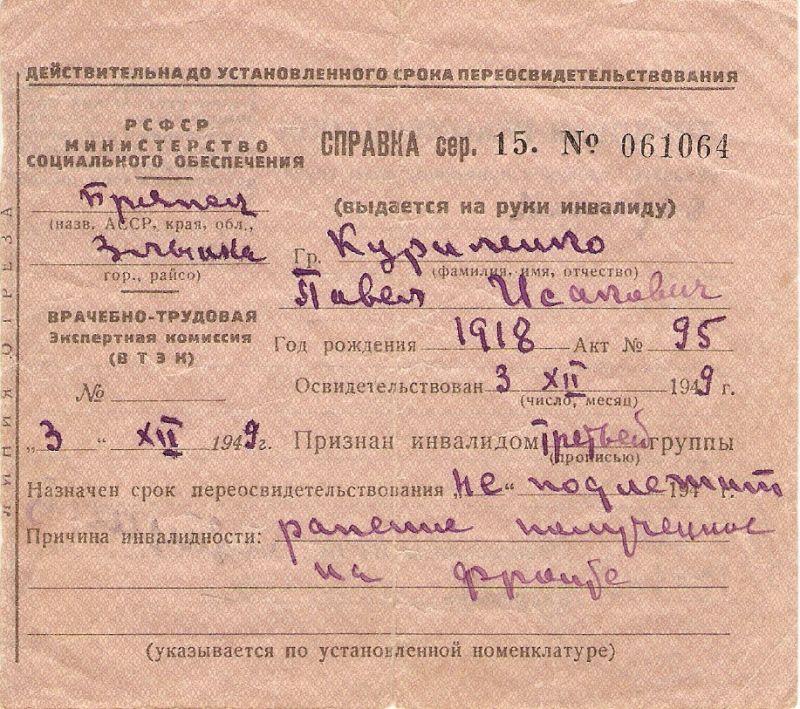 ДЕЙСТВИТЕЛЬНА ДО УСТАНОВЛЕННОГО СРОКА ПЕРЕОСВИДЕТЕЛЬСТВОВАНИЯ
РСФСР
МИНИСТЕРСТВО
СОЦИАЛЬНОГО ОБЕСПЕЧЕНИЯ
Брянск
(назв. АССР, края, обл.,
Злынка
гор., райсо)
ВРАЧЕБНО-ТРУДОВАЯ
Экспертная комиссия
(ВТЭК)
№
„3 “ XII 1949г.
СПРАВКА сер. 15. № 061064
(выдается на руки инвалиду)
Гр. Куриленко
(фамилия, имя, отчество)
Павел Исакович
Год рождения 1918 Акт № 95
Освидетельствован 3 XII 1949 г.
(число, месяц)
Признан инвалидом Третьей группы
(прописью)
Назначен срок переосвидетельствования „не“ подлежит 194 г.
Причина инвалидности: ранение полученное
на фронте
(указывается по установленной номенклатуре)
ЛИНИЯ ОТРЕЗА